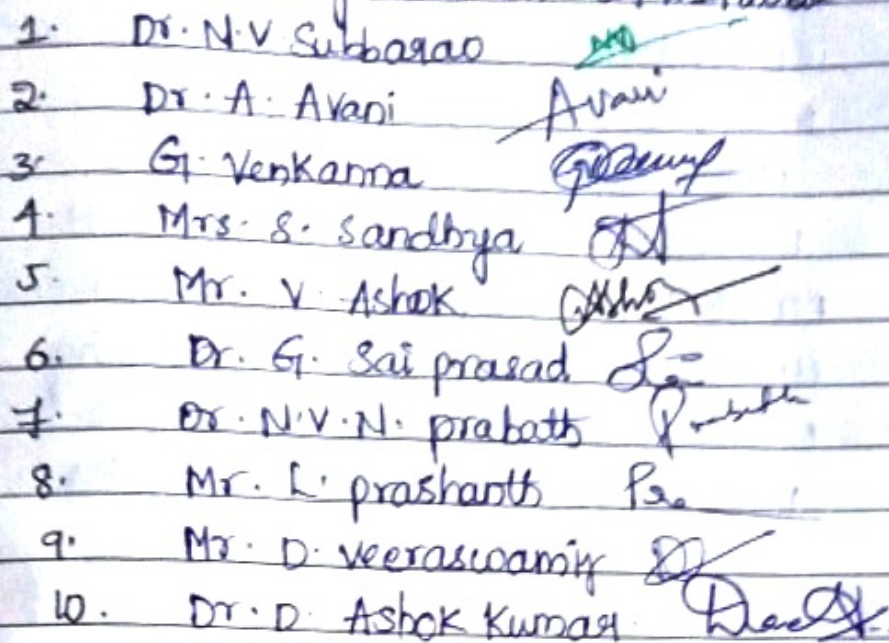 1. Dr. N.V Subbarao
2. Dr. A. Avani Avani
3. G. Venkanna
4. Mrs. S. Sandhya
5. Mr. V Ashok Asho
6. Dr. G. Sai prasad
7. Dr. N.V.N. prabath
8. Mr. L. prashanth Pra
9. Mr. D. veeraswamy
10. Dr. D. Ashok Kumar